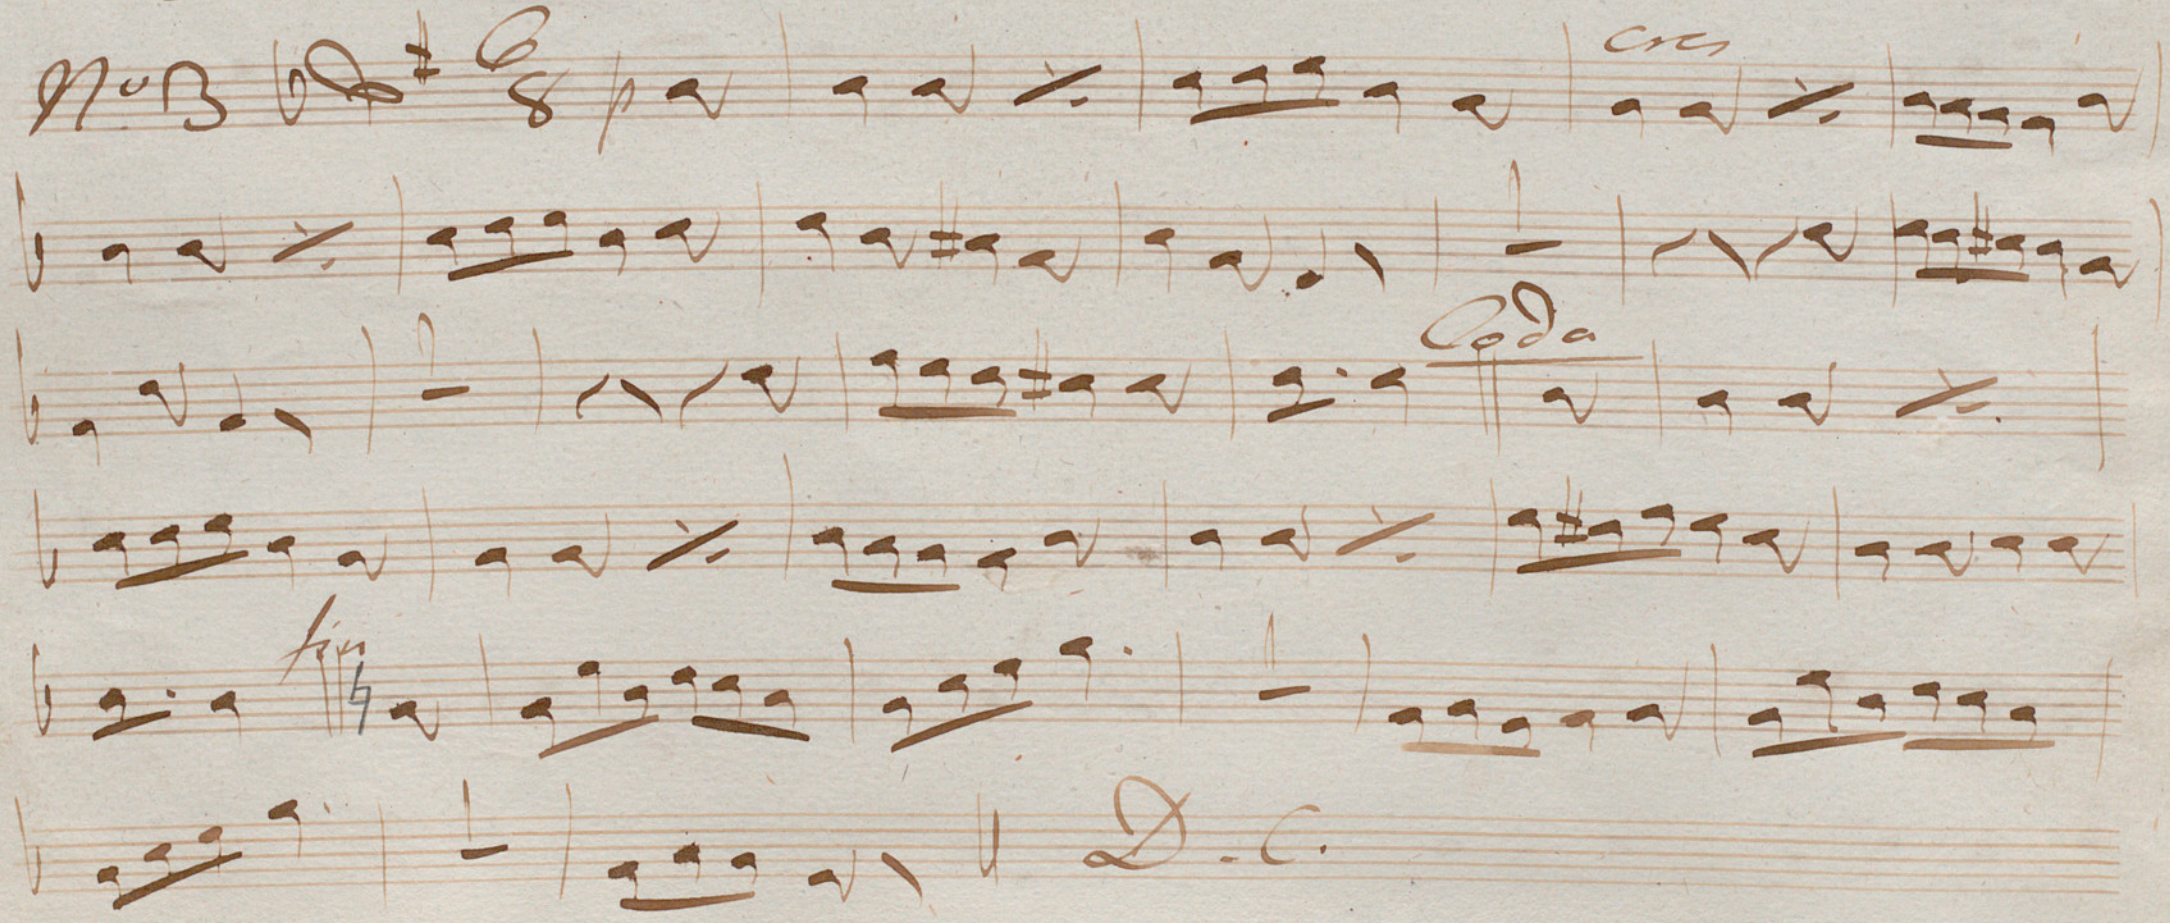 No 3 6 8 p cres
Coda
fin
D. C.